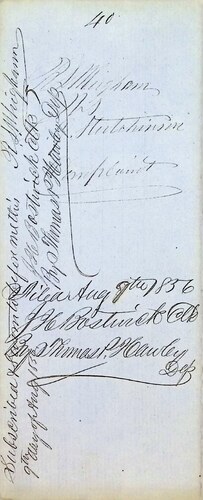 40
R S Wigham
vs
Hutchinson
Complaint
Filed Aug 9th 1856
J H Bostwick Clk
By Thomas P. Hawley
Dep
Subscribed & sworn to before me this
9th day of Aug 185
R S Wigham
J H Bostwick Clk
By Thomas P. Hawley Dep